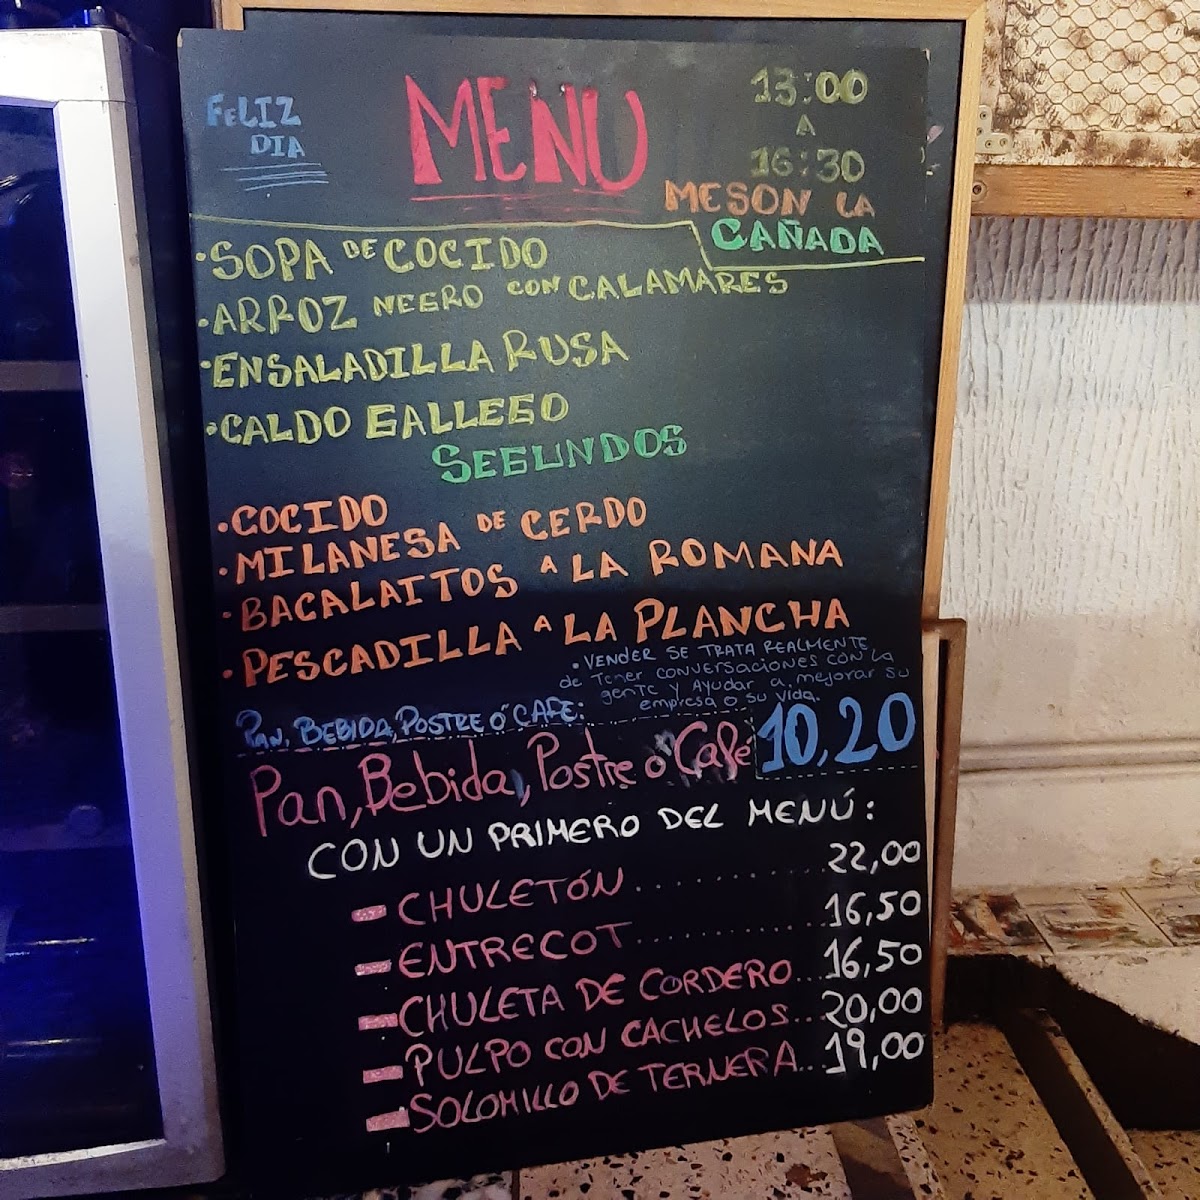 FELIZ
DIA
MENU
13:00
A
16:30
MESON LA
CAÑADA
·SOPA DE COCIDO
·ARROZ NEGRO CON CALAMARES
·ENSALADILLA RUSA
·CALDO GALLEGO
SEGUNDOS
·COCIDO
·MILANESA DE CERDO
·BACALAITOS A LA ROMANA
·PESCADILLA A LA PLANCHA
·VENDER SE TRATA REALMENTE
de Tener conversaciones con la
gente y Ayudar a mejorar su
empresa o su vida.
PAN, BEBIDA, POSTRE Ó CAFE:
Pan, Bebida, Postre o Café 10,20
CON UN PRIMERO DEL MENÚ:
- CHULETÓN.............22,00
- ENTRECOT.............16,50
- CHULETA DE CORDERO...16,50
- PULPO CON CACHELOS...20,00
- SOLOMILLO DE TERNERA...19,00